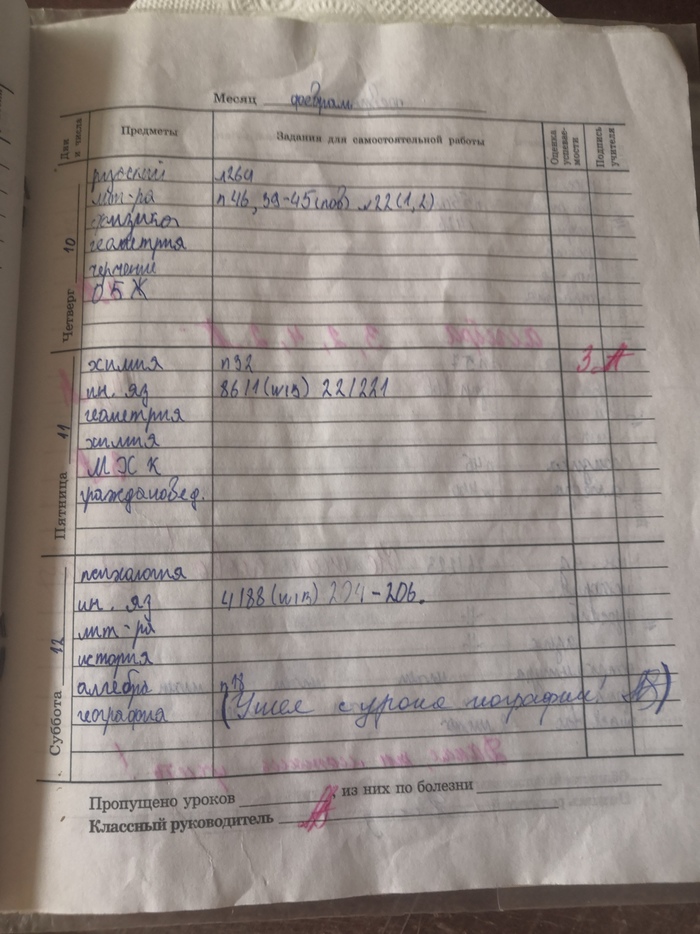 Месяц февраль
Дни и числа Предметы Задания для самостоятельной работы Оценка успеваемости Подпись учителя
Четверг 10
русский №264
лит-ра п 46, 39-45(пов) №22(1,2)
физика
геометрия
черчение
ОБЖ
Пятница 11
химия п32 3
ин. яз 86/1(w/B) 22/221
геометрия
химия
МХК
граждановед.
Суббота 12
психология
ин. яз 4/88(w/B) 204-206.
лит-ра
история
алгебра п18
география (Ушел с урока географии!)
Пропущено уроков , из них по болезни
Классный руководитель